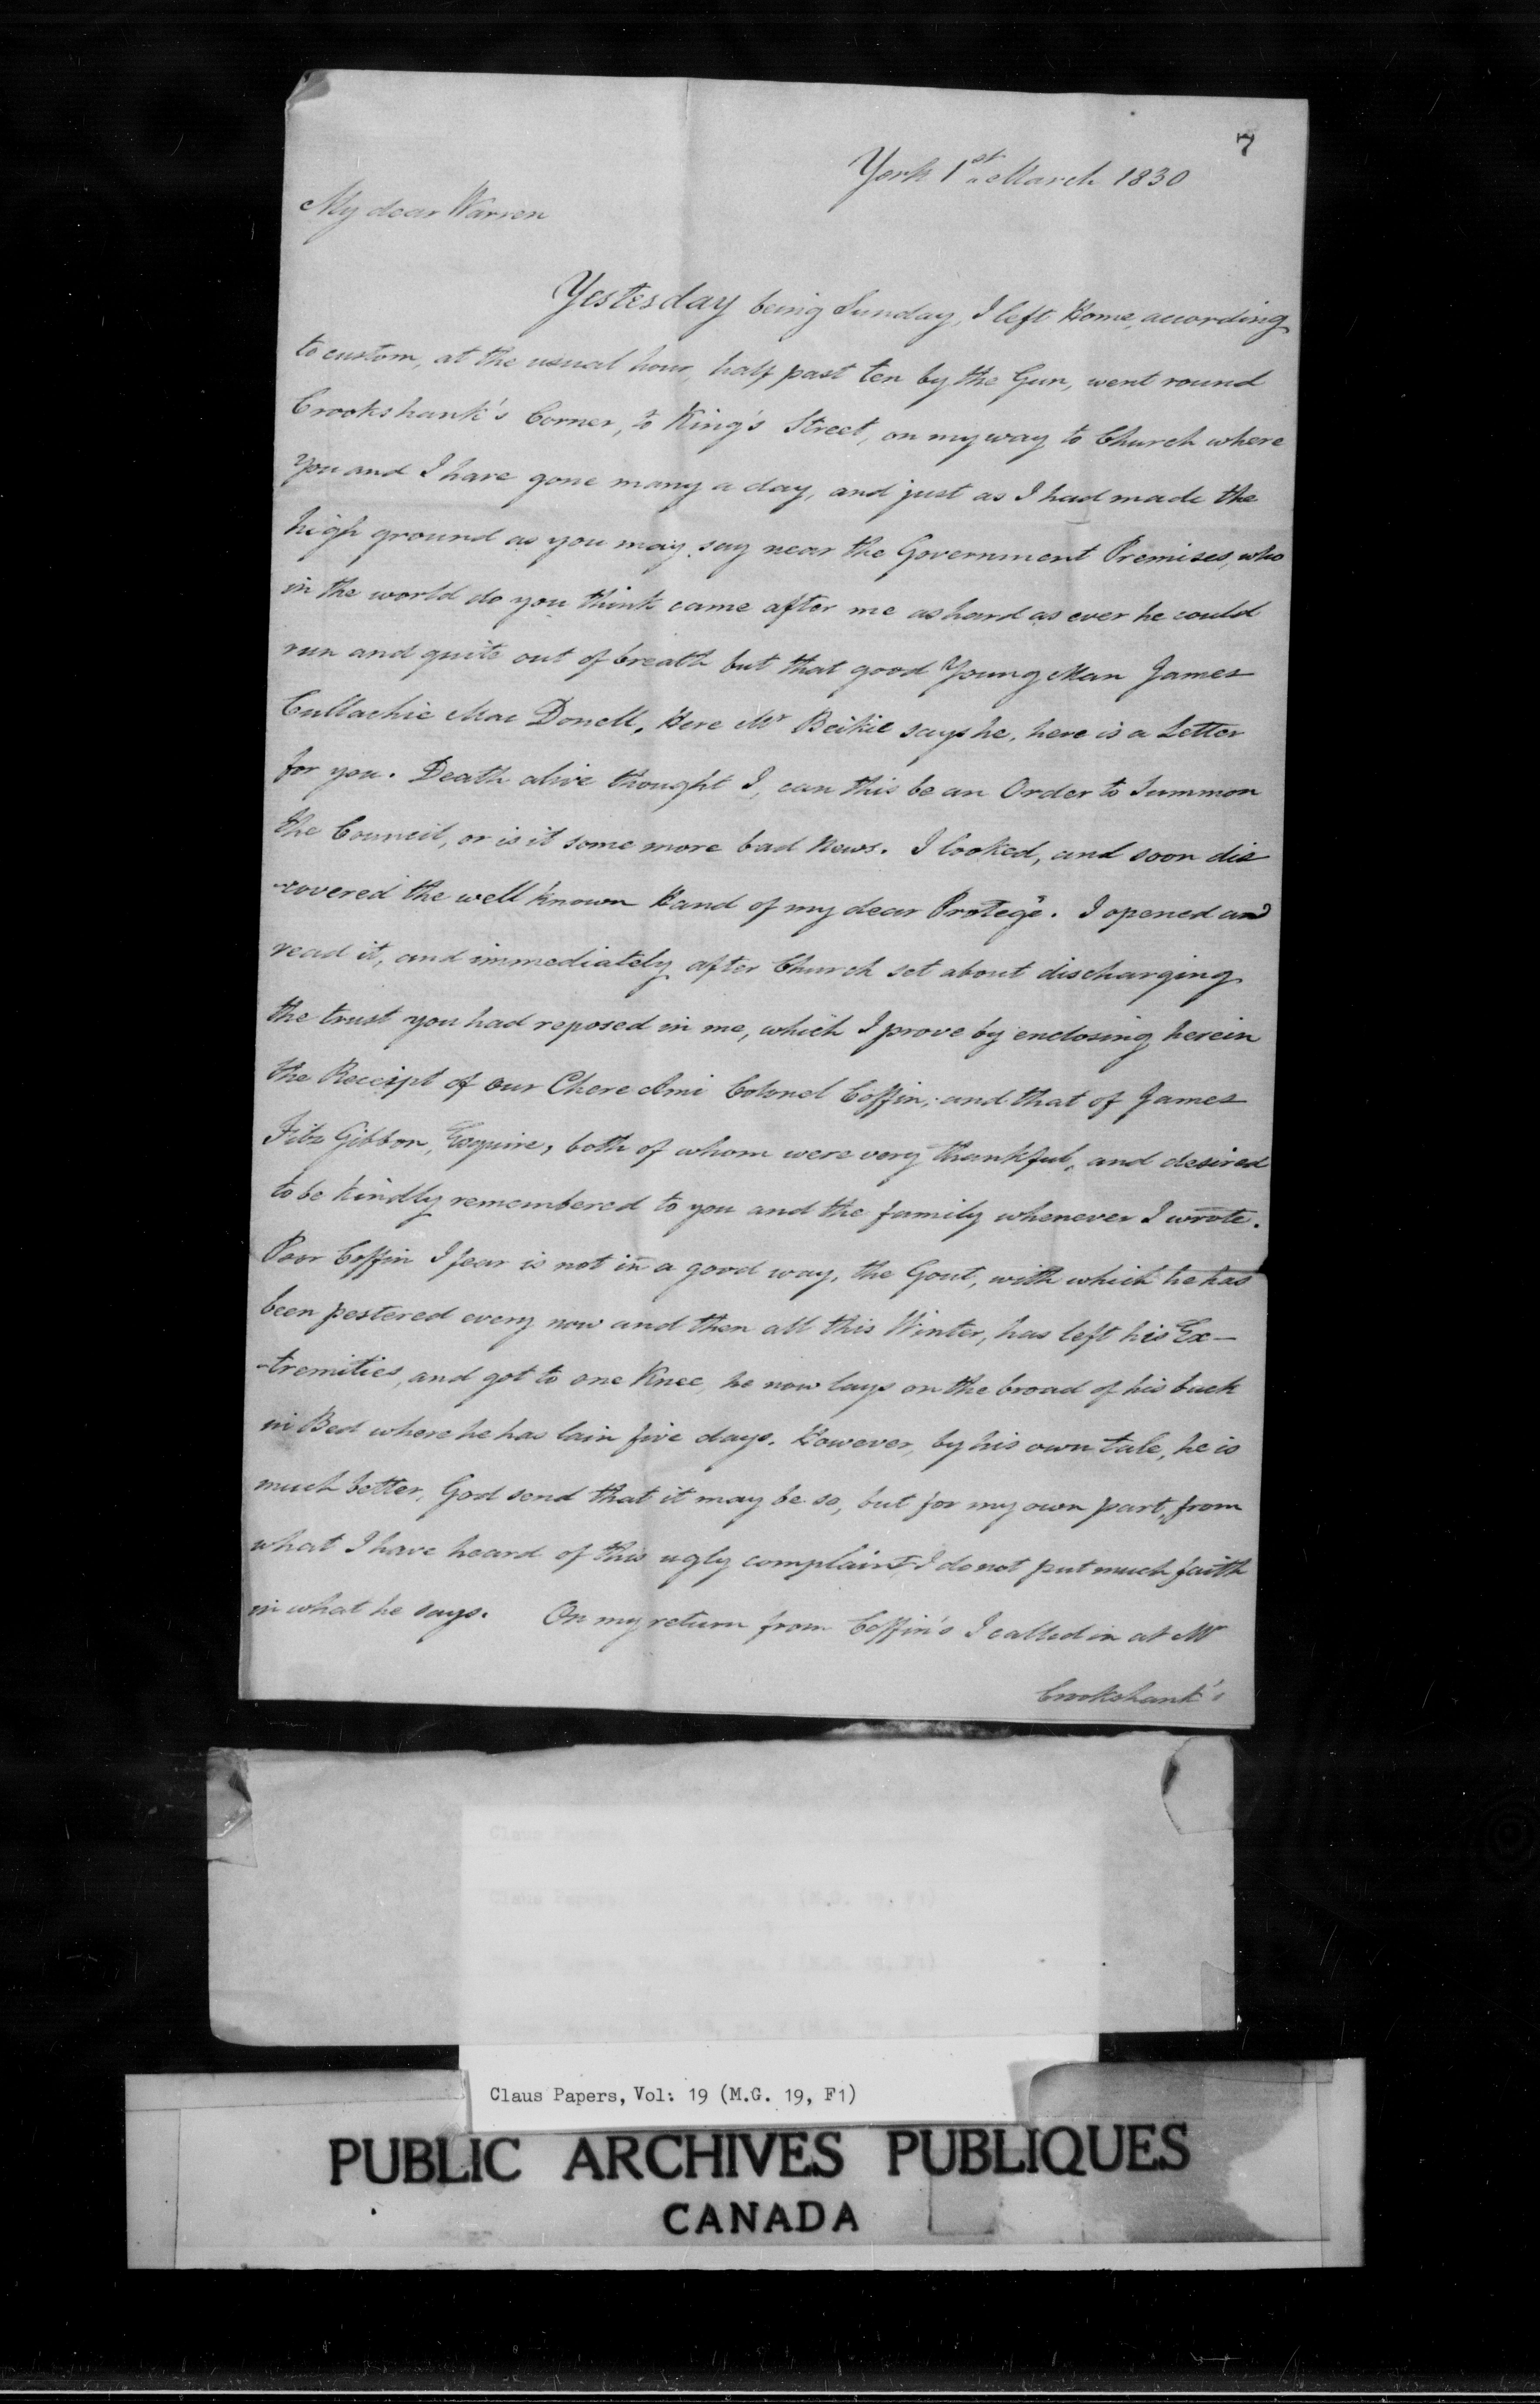 7
York 1st March 1830
My dear Warren
Yesterday being Sunday, I left Home, according
to custom, at the usual hour, half past ten by the Gun, went round
Crookshank's Corner, to King's Street, on my way to Church where
you and I have gone many a day, and just as I had made the
high ground as you may say near the Government Premises, who
in the world do you think came after me as hard as ever he could
run and quite out of breath but that good Young Man James
Cullachie Mac Donell, Here Mr Beikie says he, here is a Letter
for you. Death alive thought I, can this be an Order to Summon
the Council, or is it some more bad News. I looked, and soon dis
-covered the well known Hand of my dear Protegé. I opened and
read it, and immediately after Church set about discharging
the trust you had reposed in me, which I prove by enclosing herein
the Receipt of our Chere Ami Colonel Coffin, and that of James
Fitz Gibbon, Esquire, both of whom were very thankful, and desired
to be kindly remembered to you and the family whenever I wrote.
Poor Coffin I fear is not in a good way, the Gout, with which he has
been pestered every now and then all this Winter, has left his Ex-
-tremities, and got to one Knee, he now lays on the broad of his back
in Bed where he has lain five days. However, by his own tale, he is
much better, God send that it may be so, but for my own part, from
what I have heard of this ugly complaint I do not put much faith
in what he says. On my return from Coffin's I called in at Mr
Crookshank's
Claus Papers, Vol: 19 (M.G. 19, F1)
PUBLIC ARCHIVES PUBLIQUES
CANADA